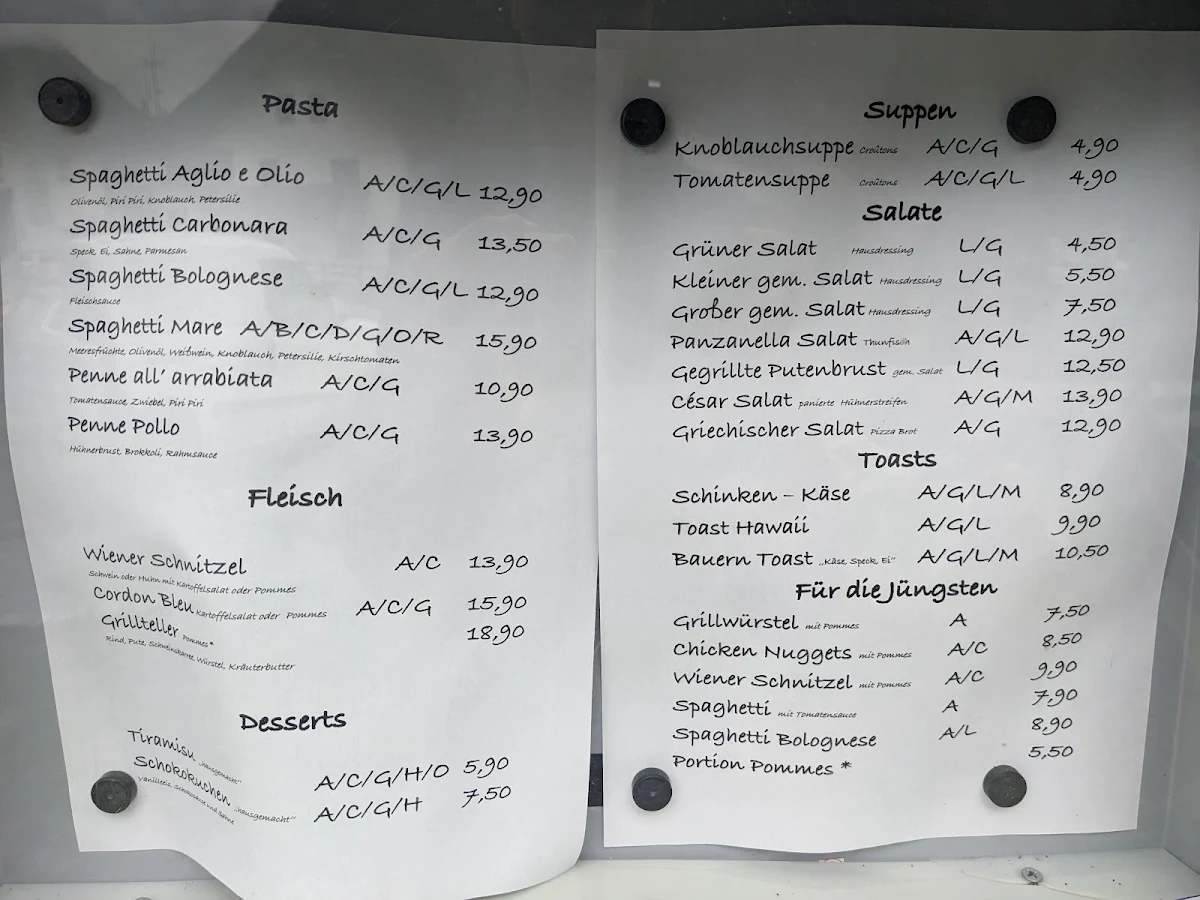 Pasta
Spaghetti Aglio e Olio A/C/G/L 12,90
Olivenöl, Piri Piri, Knoblauch, Petersilie
Spaghetti Carbonara A/C/G 13,50
Speck, Ei, Sahne, Parmesan
Spaghetti Bolognese A/C/G/L 12,90
Fleischsauce
Spaghetti Mare A/B/C/D/G/O/R 15,90
Meeresfrüchte, Olivenöl, Weißwein, Knoblauch, Petersilie, Kirschtomaten
Penne all' arrabiata A/C/G 10,90
Tomatensauce, Zwiebel, Piri Piri
Penne Pollo A/C/G 13,90
Hühnerbrust, Brokkoli, Rahmsauce
Fleisch
Wiener Schnitzel A/C 13,90
Schwein oder Huhn mit Kartoffelsalat oder Pommes
Cordon Bleu Kartoffelsalat oder Pommes A/C/G 15,90
Grillteller Pommes* 18,90
Rind, Pute, Schweinskarree, Würstel, Kräuterbutter
Desserts
Tiramisu „hausgemacht" A/C/G/H/O 5,90
Schokokuchen „hausgemacht" A/C/G/H 7,50
Vanilleeis, Schokosauce und Sahne
Suppen
Knoblauchsuppe Croûtons A/C/G 4,90
Tomatensuppe Croûtons A/C/G/L 4,90
Salate
Grüner Salat Hausdressing L/G 4,50
Kleiner gem. Salat Hausdressing L/G 5,50
Großer gem. Salat Hausdressing L/G 7,50
Panzanella Salat Thunfisch A/G/L 12,90
Gegrillte Putenbrust gem. Salat L/G 12,50
César Salat panierte Hühnerstreifen A/G/M 13,90
Griechischer Salat Pizza Brot A/G 12,90
Toasts
Schinken – Käse A/G/L/M 8,90
Toast Hawaii A/G/L 9,90
Bauern Toast „Käse, Speck, Ei" A/G/L/M 10,50
Für die Jüngsten
Grillwürstel mit Pommes A 7,50
Chicken Nuggets mit Pommes A/C 8,50
Wiener Schnitzel mit Pommes A/C 9,90
Spaghetti mit Tomatensauce A 7,90
Spaghetti Bolognese A/L 8,90
Portion Pommes * 5,50